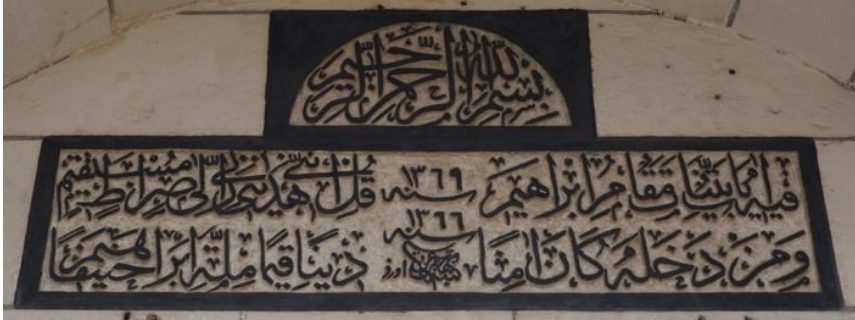 بِسْمِ اللهِ الرَّحْمٰنِ الرَّحِيْمِ
فِيْهِ اٰيَاتٌ بَيِّنَاتٌ مَقَامُ اِبْرَاهِيْمَ سنه ١٣٦٩ قُلْ اِنَّنِيْ هَدٰنِيْ رَبِّيْ اِلٰى صِرَاطٍ مُسْتَقِيْمٍ
وَمَنْ دَخَلَهُ كَانَ اٰمِنًا سنه ١٣٦٦ دِيْنًا قِيَمًا مِلَّةَ اِبْرَاهِيْمَ حَنِيْفًا